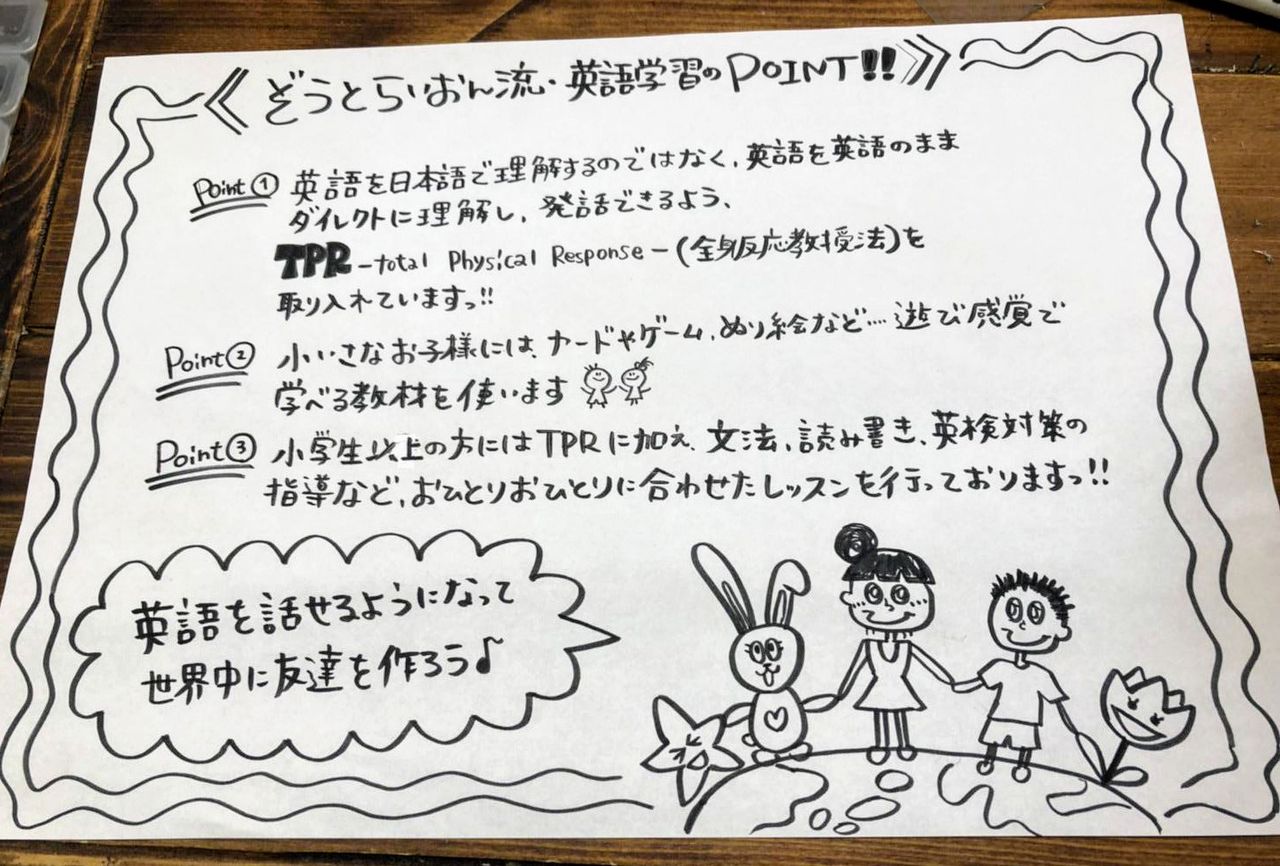 ≪ ぞうとらいおん流・英語学習のPOINT!! ≫
Point① 英語を日本語で理解するのではなく、英語を英語のまま
ダイレクトに理解し、発話できるよう、
TPR -total Physical Response-(全身反応教授法)を
取り入れていますっ!!
Point② 小いさなお子様には、カードやゲーム、ぬり絵など…遊び感覚で
学べる教材を使います
Point③ 小学生以上の方にはTPRに加え、文法、読み書き、英検対策の
指導など、おひとりおひとりに合わせたレッスンを行っておりますっ!!
英語を話せるようになって
世界中に友達を作ろう♪